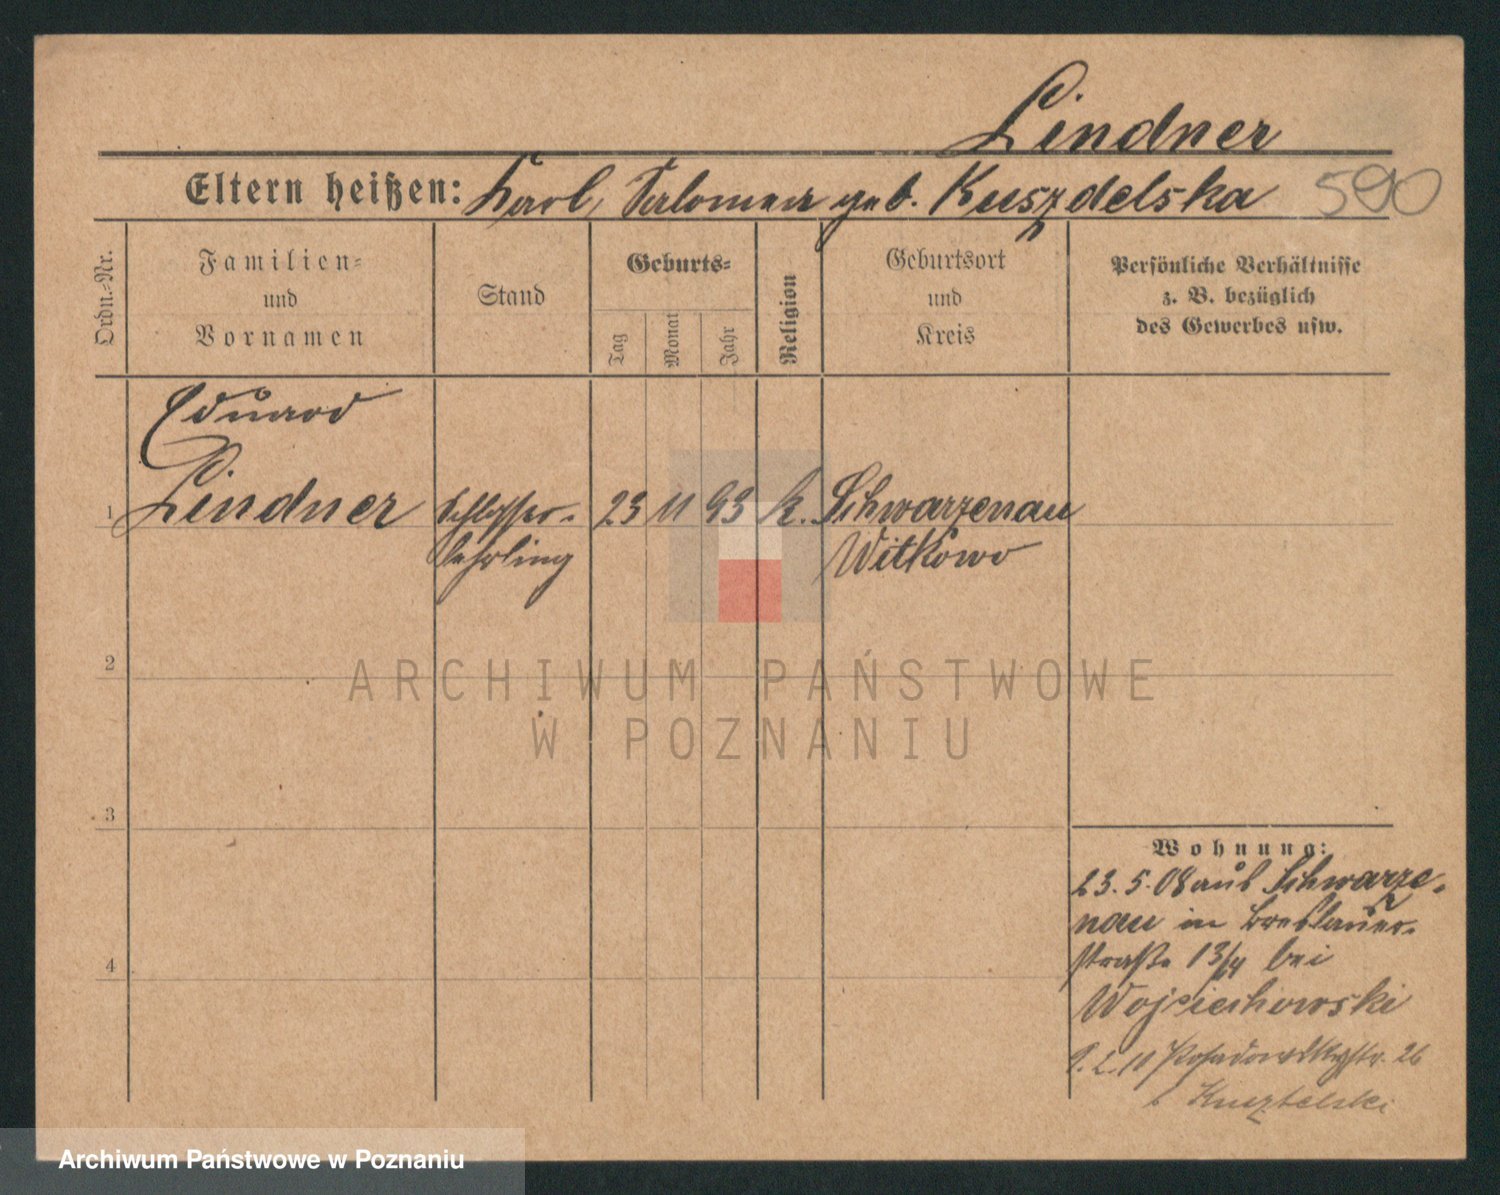 Lindner
Eltern heißen: Karl, Salomea geb. Kuszdelska 590
Ordn.-Nr.
Familien-
und
Vornamen
Stand
Geburts-
Tag
Monat
Jahr
Religion
Geburtsort
und
Kreis
Persönliche Verhältnisse
z. B. bezüglich
des Gewerbes usw.
Eduard
1 Lindner Schlosser- 23 11 93 k. Schwarzenau
lehrling Witkowo
2
ARCHIWUM PAŃSTWOWE
W POZNANIU
3
Wohnung:
23.5.08 aus Schwarze-
nau in Breslauer-
straße 13/14 bei
4
Wojciechowski
Posadowskystr. 26
b Kusztelski
Archiwum Państwowe w Poznaniu